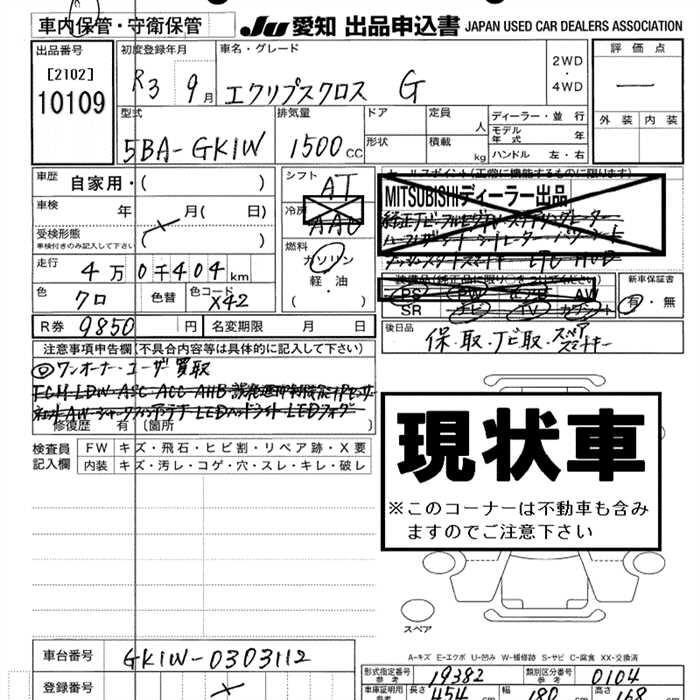 車内保管・守衛保管
JU 愛知 出品申込書 JAPAN USED CAR DEALERS ASSOCIATION
出品番号
[2102]
10109
初度登録年月
R3 9月
車名・グレード
エクリプスクロス G
2WD
・
4WD
評価点
外装 内装
型式
5BA-GK1W
排気量
1500cc
ドア
形状
定員
人
積載
kg
ディーラー・並行
モデル年式 年
ハンドル 左・右
車歴 自家用・( )
車検 年 月( 日)
受検形態
車検付きのみ記入して下さい ( )
走行 4万0千404km
色 クロ 色替 色コード X42
シフト AT
冷房 AAC
燃料
ガソリン
軽・油
( )
セールスポイント(正常に機能するものに限ります)
MITSUBISHIディーラー出品
PS PW AW
SR ナビ TV
新車保証書
有・無
R券 9850円 名変期限 月 日
後日品
保・取・ナビ取・スペア
スマートキー
注意事項申告欄(不具合内容等は具体的に記入して下さい)
◎ワンオーナー・ユーザー買取
FCM LDW ASC ACC AHB
修復歴 有(箇所 )
検査員
記入欄
FW キズ・飛石・ヒビ割・リペア跡・X要
内装 キズ・汚レ・コゲ・穴・スレ・キレ・破レ
現状車
※このコーナーは不動車も含み
ますのでご注意下さい
スペア
A-キズ E-エクボ U-凹み W-補修跡 S-サビ C-腐食 XX-交換済
車台番号 GK1W-0303112
登録番号
形式指定番号
参考 19382
類別区分番号
参考 0104
車庫証明用
参考
長さ 454 cm 幅 180 cm 高さ 168 cm